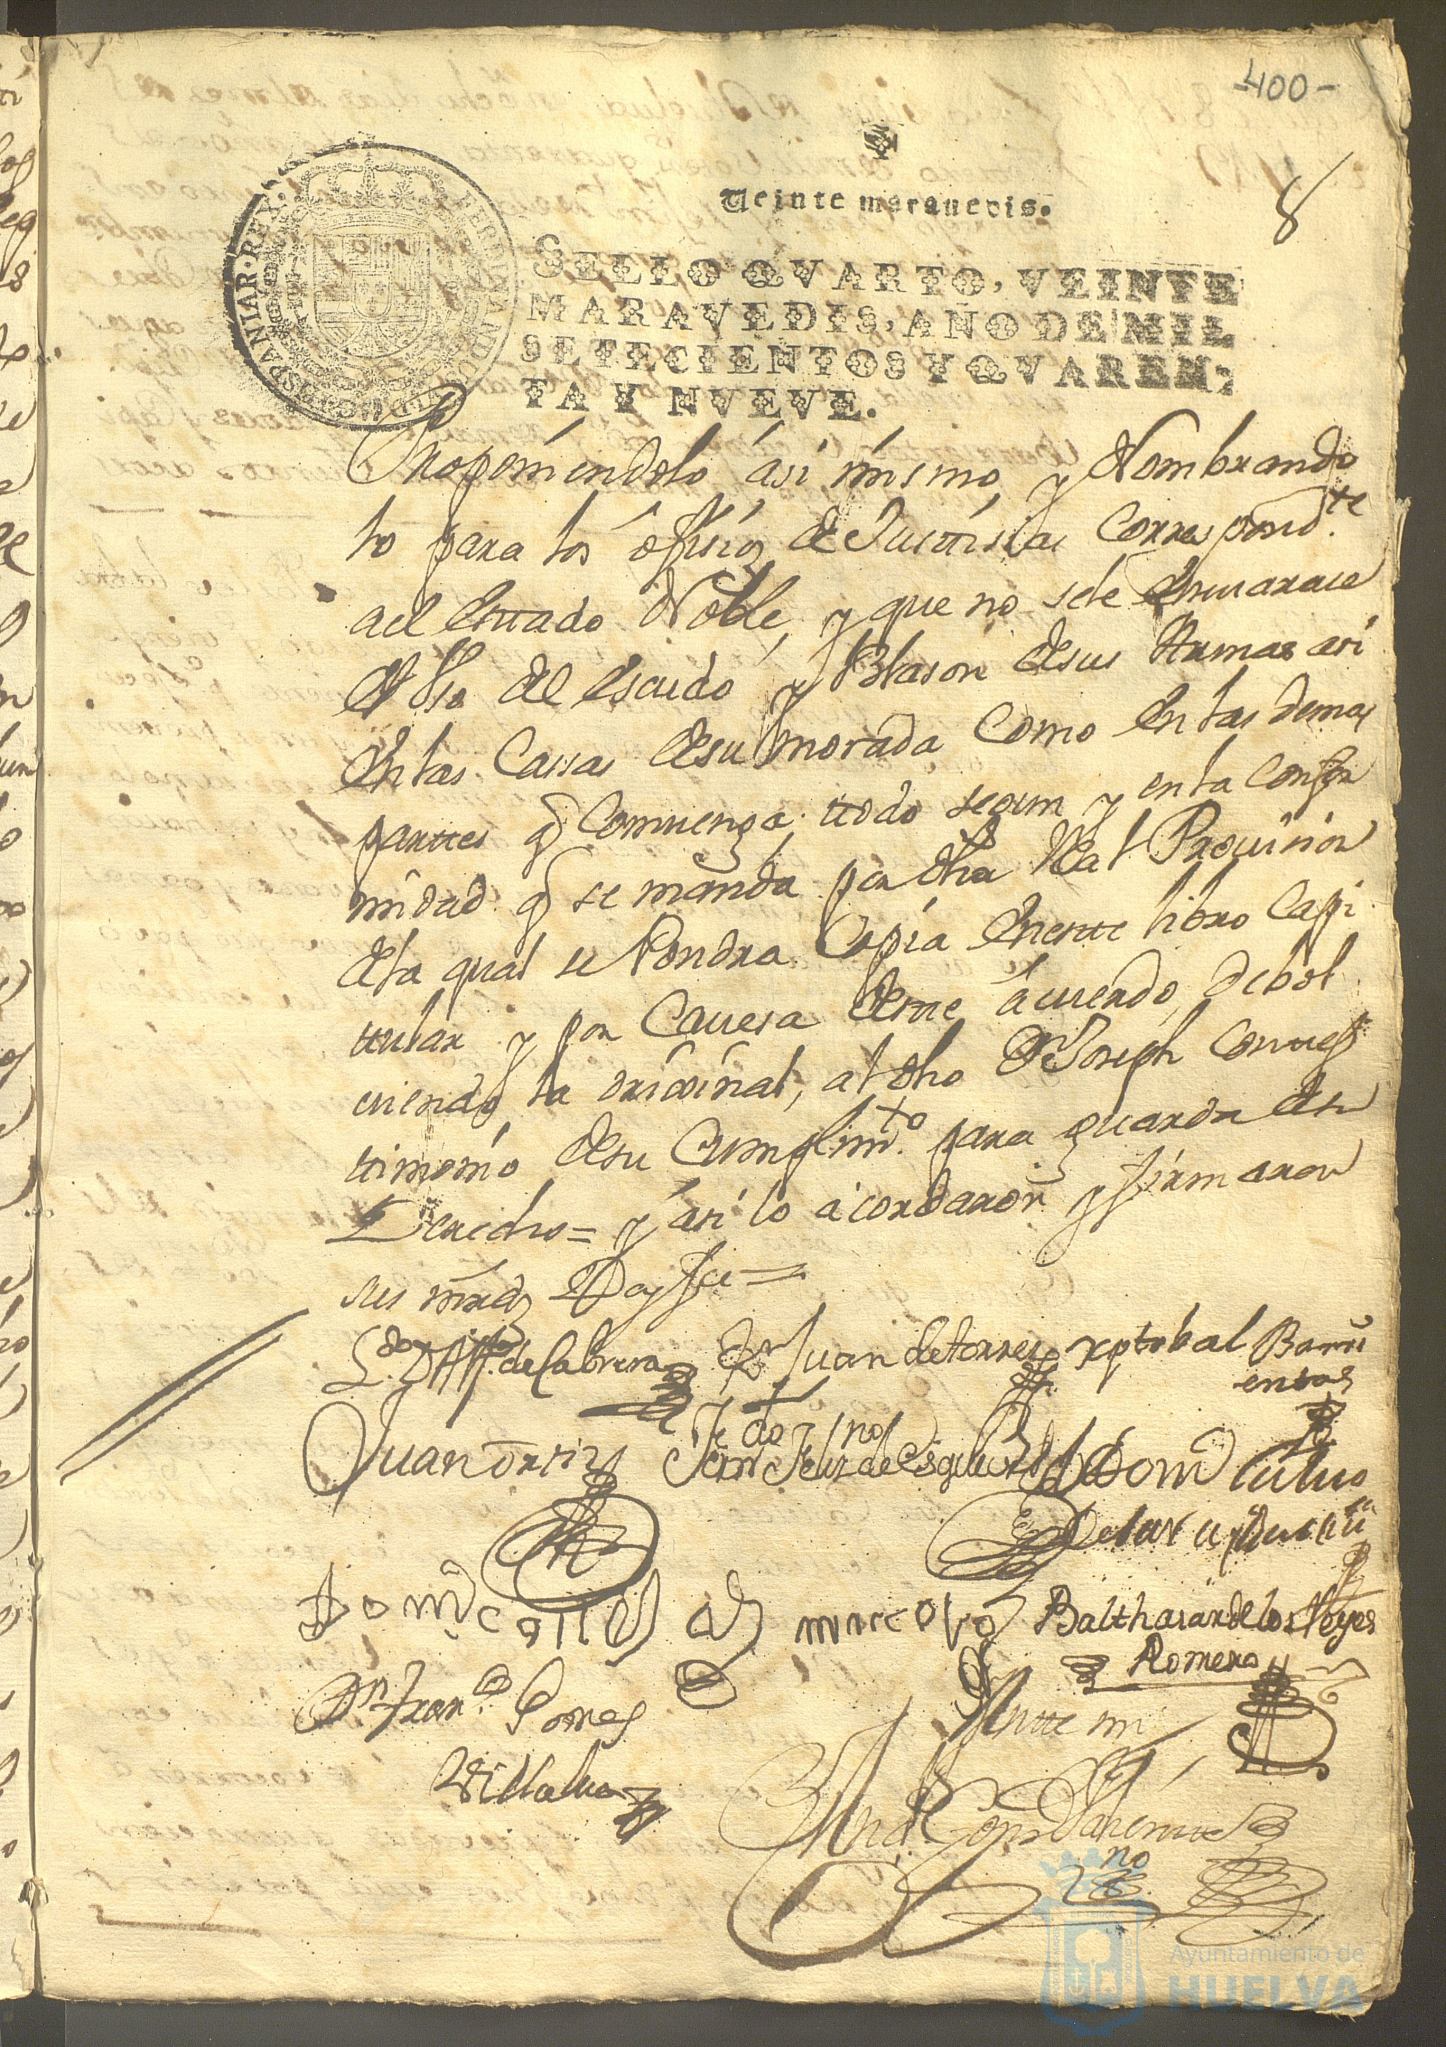 -400-
8
Veinte maravedis.
SELLO QVARTO, VEINTE
MARAVEDIS, AÑO DE MIL
SETECIENTOS Y QVAREN-
TA Y NVEVE.
Proponiendolo ási mismo, y Nombrando
lo para los ófisios de Justisias Correspond.te
ael Estado Noble, y que no sele Embarase
el Uso del Escudo y Blason desus Armas asi
en las Cassas desu morada Como en las demas
parttes q Convenga; ttodo segun y en la Confor
midad q se manda por dha Real Provision
dela qual se Pondra Copia En este libro Capi
ttular y por Cavesa deste ácuerdo, debol
viendo la original, al dho Dn Joseph Con tes
timonio desu Cumplim.to para guarda desu
Derecho = y ási lo ácordaron y firmaron
sus mrds Doy fee =
L.do D. Alf.o de Cabrera Dn Juan de torres xptobal Barri
entos
Juan ortiz
Dom
Dom
Balthasar de los Reyes
Romero
Dn Fran.co Gomez
Villalva
Antte mi
Ayuntamiento de
HUELVA